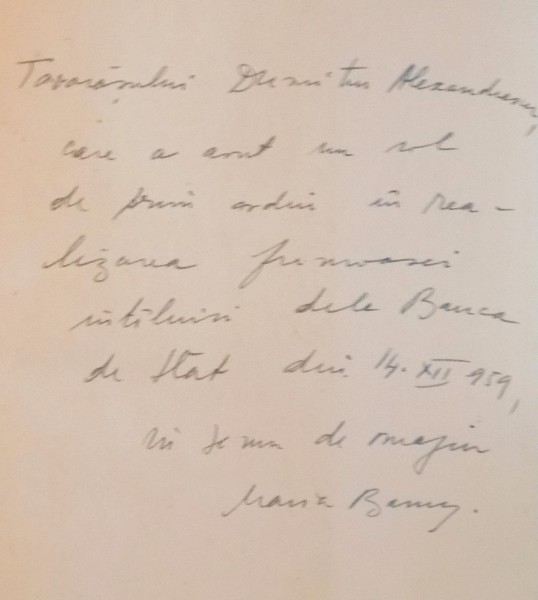 Tovarășului Dumitru Alexandrescu,
care a avut un rol
de prim ordin în rea-
lizarea frumoasei
întâlniri dela Banca
de Stat din 14.XII 959,
în semn de omagiu
Maria Banuș.